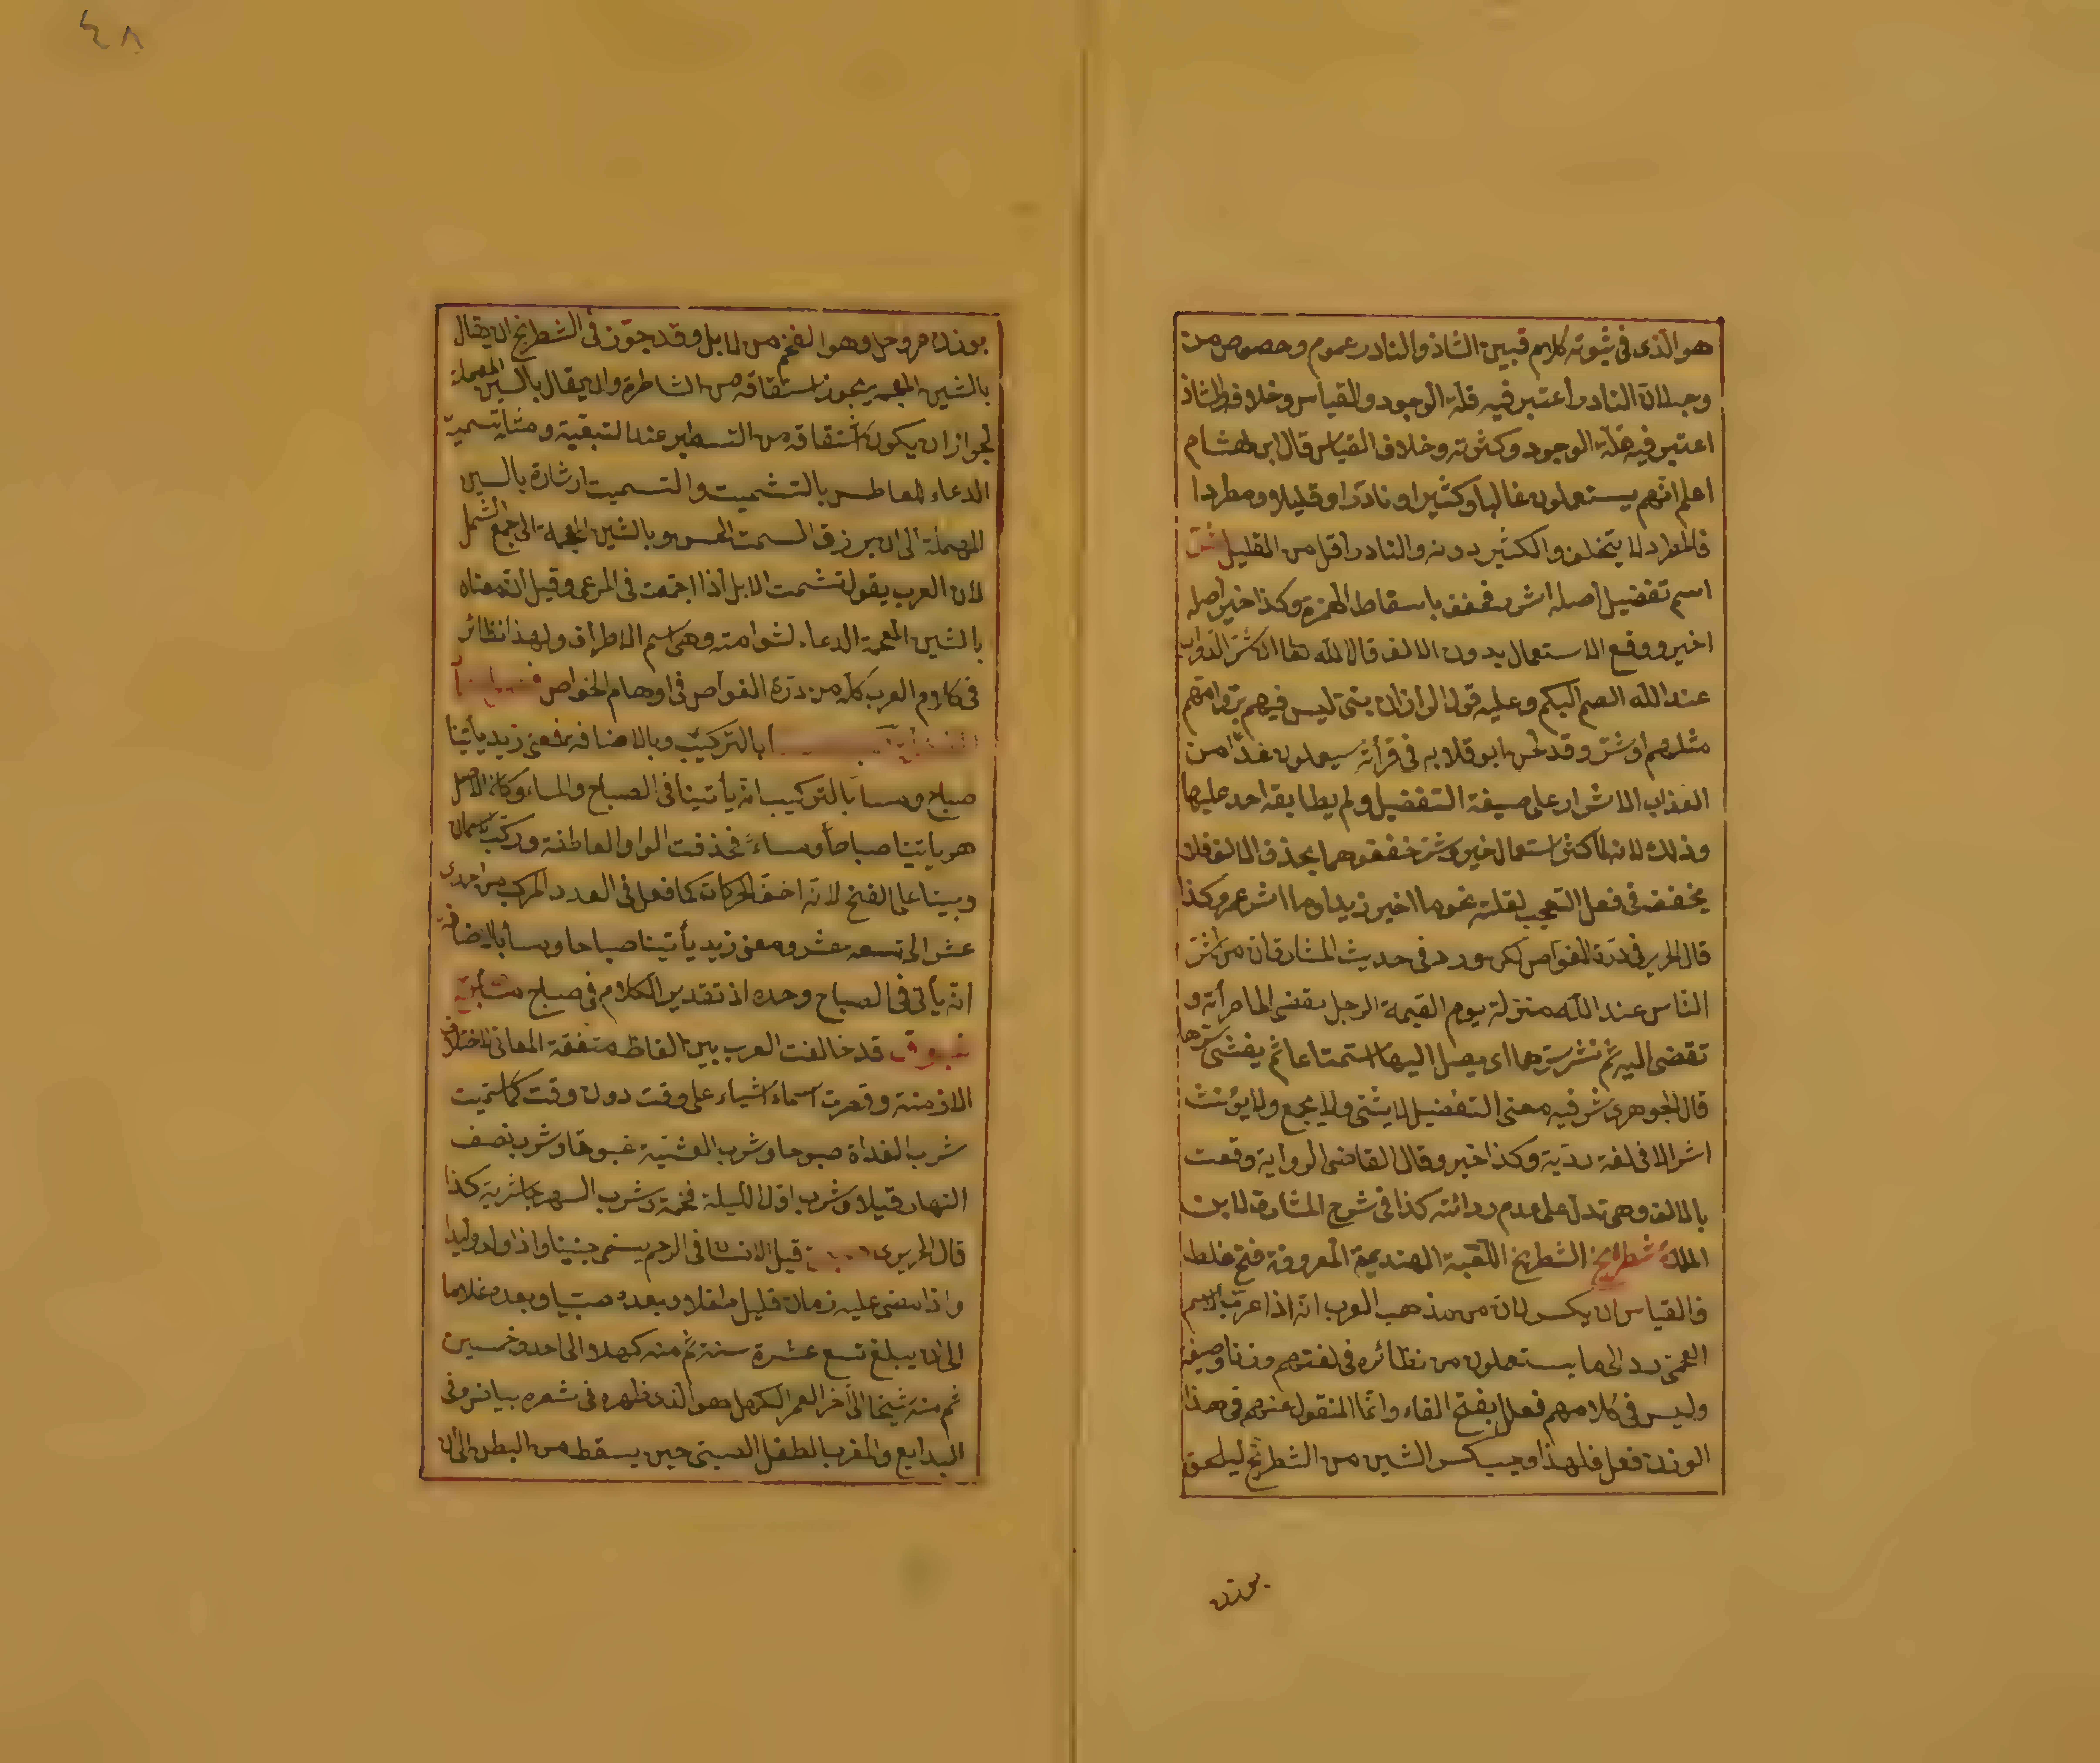 هو الذى فى ثبوته كلام فبين الشاذ والنادر عموم وخصوص من
وجه لان النادر اعتبر فيه قلة الوجود والقياس وخلافه والشاذ
اعتبر فيه قلة الوجود وكثرته وخلاف القياس قال ابن هشام
اعلم انهم يستعملون غالبا وكثيرا ونادرا وقليلا ومطردا
فالمطرد لا يتخلف والكثير دونه والنادر اقل من القليل شر
اسم تفضيل اصله اشر فخفف باسقاط الهمزة وكذا خير اصله
اخير ووقع الاستعمال بدون الالف قال الله تعا ان شر الدواب
عند الله الصم البكم وعليه قول الراز ان بنى ليس فيهم بر وامهم
مثلهم او شر وقد لحن ابو قلابه فى قرأته سيعلمون غدا من
الكذاب الاشر على صيغة التفضيل ولم يطابقه احد عليها
وذلك لانه لما كثر استعمال خير وشر خففوهما بحذف الالف فلا
يخفف فى فعل التعجب لقلته نحو ما اخير زيدا وما اشر عمرو كذا
قال الحرير فى درة الغواص لكن ورد فى حديث المشارق ان من اشر
الناس عند الله منزلة يوم القيمة الرجل يفضى الى امرأته و
تفضى اليه ثم نشر سرهما اى يصل اليها استمتاعا ثم يفشى سرها
قال الجوهرى شر فيه معنى التفضيل لا يثنى ولا يجمع ولا يؤنث
اشر الا فى لغة ردية وكذا خير وقال القاضى الرواية وقعت
بالالف وهى تدل على عدم ردائته كذا فى شرح المشارق لابن
الملك شطرنج الشطرنج اللعبة الهندية المعروفة فتح غلط
والقياس ان يكسر لان من مذهب العرب انه اذا عرب الاسم
العجمى رد الى ما يستعملون من نظائره فى لغتهم وزنا وصيغة
وليس فى كلامهم فعلل بفتح الفاء وانما المنقول عنهم فى هذا
الوزن فعلل فلهذا وجب كسر الشين من الشطرنج ليلحق
بوزن
٤٨
بوزن جردحل وهو الضخم من الابل وقد جوز فى الشطرنج ان يقال
بالشين المعجمة بجوز اشتقاقه من الشاطرة وان يقال بالسين المهملة
لجواز ان يكون اشتقاقه من التسطير عند التبقية ومثله تسمية
الدعاء للعاطس بالتشميت والتسميت اشارة بالسين
المهملة الى ان يرزق السمت الحسن وبالشين المعجمة الى جمع الشمل
لان العرب يقول تشمت الابل اذا اجتمعت فى المرعى وقيل ان معناه
بالشين المعجمة الدعاء لشوامته وهى اسم الاطراف ولهذا نظائر
فى كلام العرب كله من درة الغواص فى اوهام الخواص
بالتركيب وبالاضافة فمعنى زيد يأتينا
صباح ومسا بالتركيب انه يأتينا فى الصباح والمساء وكان الاصل
هو يأتينا صباحا ومساء فحذفت الواو العاطفة وركب الاسمان
وبنيا على الفتح لانه اخف الحركات كما فعل فى العدد المركب من احدى
عشر الى تسعه عشر ومعنى زيد يأتينا صباحا ومسا بالاضافة
انه يأتى فى الصباح وحده اذ تقدير الكلام فى صباح
غبوق قد خالفت العرب بين الفاظ متفقة المعانى لاختلاف
الازمنة وقصرت اسماء اشياء على وقت دون وقت كما سميت
شرب الغداة صبوحا وشرب العشية غبوقا وشرب نصف
النهار قيلا وشرب اول الليلة فحمة وشرب السحر جاشرية كذا
قال الحريرى قيل الانسان فى الرحم يسمى جنينا واذا ولد وليدا
واذا مضى عليه زمان قليل طفلا وبعده صبيا وبعده غلاما
الى ان يبلغ تسع عشرة سنة ثم منه كهلا الى احد وخمسين
ثم منه شيخا الى آخر العمر الكهل هو الذى ظهره فى شعره بياض وفى
البدايع والمغرب الطفل الصبى حين يسقط من البطن الى ان